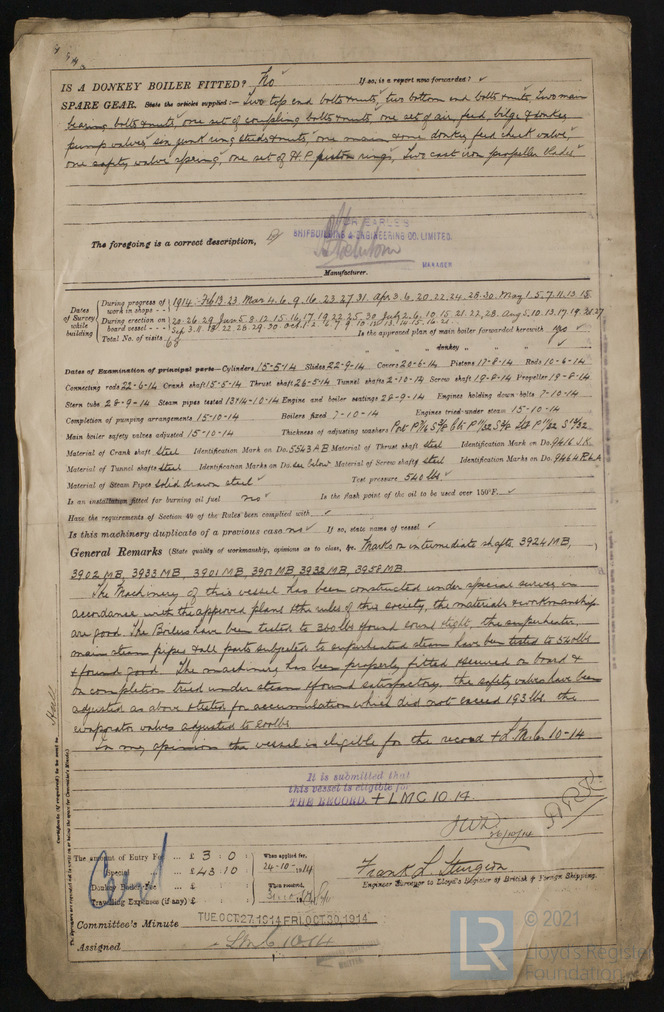 IS A DONKEY BOILER FITTED? No ✓ If so, is a report now forwarded? ✓
SPARE GEAR. State the articles supplied:— Two top end bolts & nuts, two bottom end bolts & nuts, Two main
bearing bolts & nuts, one set of coupling bolts & nuts, one set of air, feed, bilge & donkey
pump valves, six junk ring studs & nuts, one main & one donkey feed check valve,
one safety valve spring, one set of H.P piston rings, Two cast iron propeller blades
The foregoing is a correct description,
SHIPBUILDING & ENGINEERING CO. LIMITED.
MANAGER
Manufacturer.
Dates of Survey while building
During progress of work in shops - - 1914. Feb 13. 23 Mar 4. 6. 9. 16. 23. 27. 31. Apr 3. 6. 20. 22. 24. 28. 30. May 1. 5. 7. 11. 13. 15.
During erection on board vessel - - - 20. 26. 29. Jun 5. 8. 12. 15. 16. 17. 19. 22. 25. 30 July 2. 6. 10. 15. 21. 22. 28. Aug 5. 10. 13. 17. 19. 21. 27
Sep 3. 11. 18. 22. 28. 29. 30. Oct 1. 2
Total No. of visits 68 Is the approved plan of main boiler forwarded herewith Yes ✓
" " " donkey " " "
Dates of Examination of principal parts—Cylinders 15-5-14 Slides 22-9-14 Covers 20-6-14 Pistons 17-8-14 Rods 10-6-14
Connecting rods 22-6-14 Crank shaft 15-5-14 Thrust shaft 26-5-14 Tunnel shafts 2-10-14 Screw shaft 19-8-14 Propeller 19-8-14
Stern tube 28-9-14 Steam pipes tested 13 & 14-10-14 Engine and boiler seatings 28-9-14 Engines holding down bolts 7-10-14
Completion of pumping arrangements 15-10-14 Boilers fixed 7-10-14 Engines tried under steam 15-10-14
Main boiler safety valves adjusted 15-10-14 Thickness of adjusting washers
Material of Crank shaft Steel Identification Mark on Do. 5543 AB Material of Thrust shaft Steel Identification Mark on Do. 9416 J.K
Material of Tunnel shafts Steel Identification Marks on Do. see below Material of Screw shafts Steel Identification Marks on Do. 9464 R.A
Material of Steam Pipes Solid drawn steel ✓ Test pressure 540 lbs ✓
Is an installation fitted for burning oil fuel no ✓ Is the flash point of the oil to be used over 150°F. ✓
Have the requirements of Section 49 of the Rules been complied with ✓
Is this machinery duplicate of a previous case no ✓ If so, state name of vessel ✓
General Remarks (State quality of workmanship, opinions as to class, &c. Marks on intermediate shafts 3924 MB,
3902 MB, 3933 MB, 3901 MB, MB, 3932 MB, 3958 MB.
The Machinery of this vessel has been constructed under special survey in
accordance with the approved plans & the rules of this society, the materials & workmanship
are good. The Boilers have been tested to 360 lbs & found sound & tight, the superheater,
main steam pipes & all parts subjected to superheated steam have been tested to 540 lbs
& found good. The machinery has been properly fitted & secured on board &
on completion tried under steam & found satisfactory. the safety valves have been
adjusted as above & tested for accumulation which did not exceed 193 lbs the
evaporator valves adjusted to lbs
In my opinion the vessel is eligible for the record + L.M.C. 10-14
It is submitted that
this vessel is eligible for
THE RECORD. + LMC 10.14.
26/10/14
Certificate (if required) to be sent to Hull
The amount of Entry Fee .. £ 3 : 0 : When applied for,
Special .. £ 43 : 10 24-10-1914
Donkey Boiler Fee .. £ When received,
Travelling Expenses (if any) £
Frank L. Sturgeon
Engineer Surveyor to Lloyd's Register of British & Foreign Shipping.
Committee's Minute TUE. OCT. 27. 1914 FRI. OCT. 30. 1914
Assigned + LMC 10.14
LR
© 2021
Lloyd's Register
Foundation